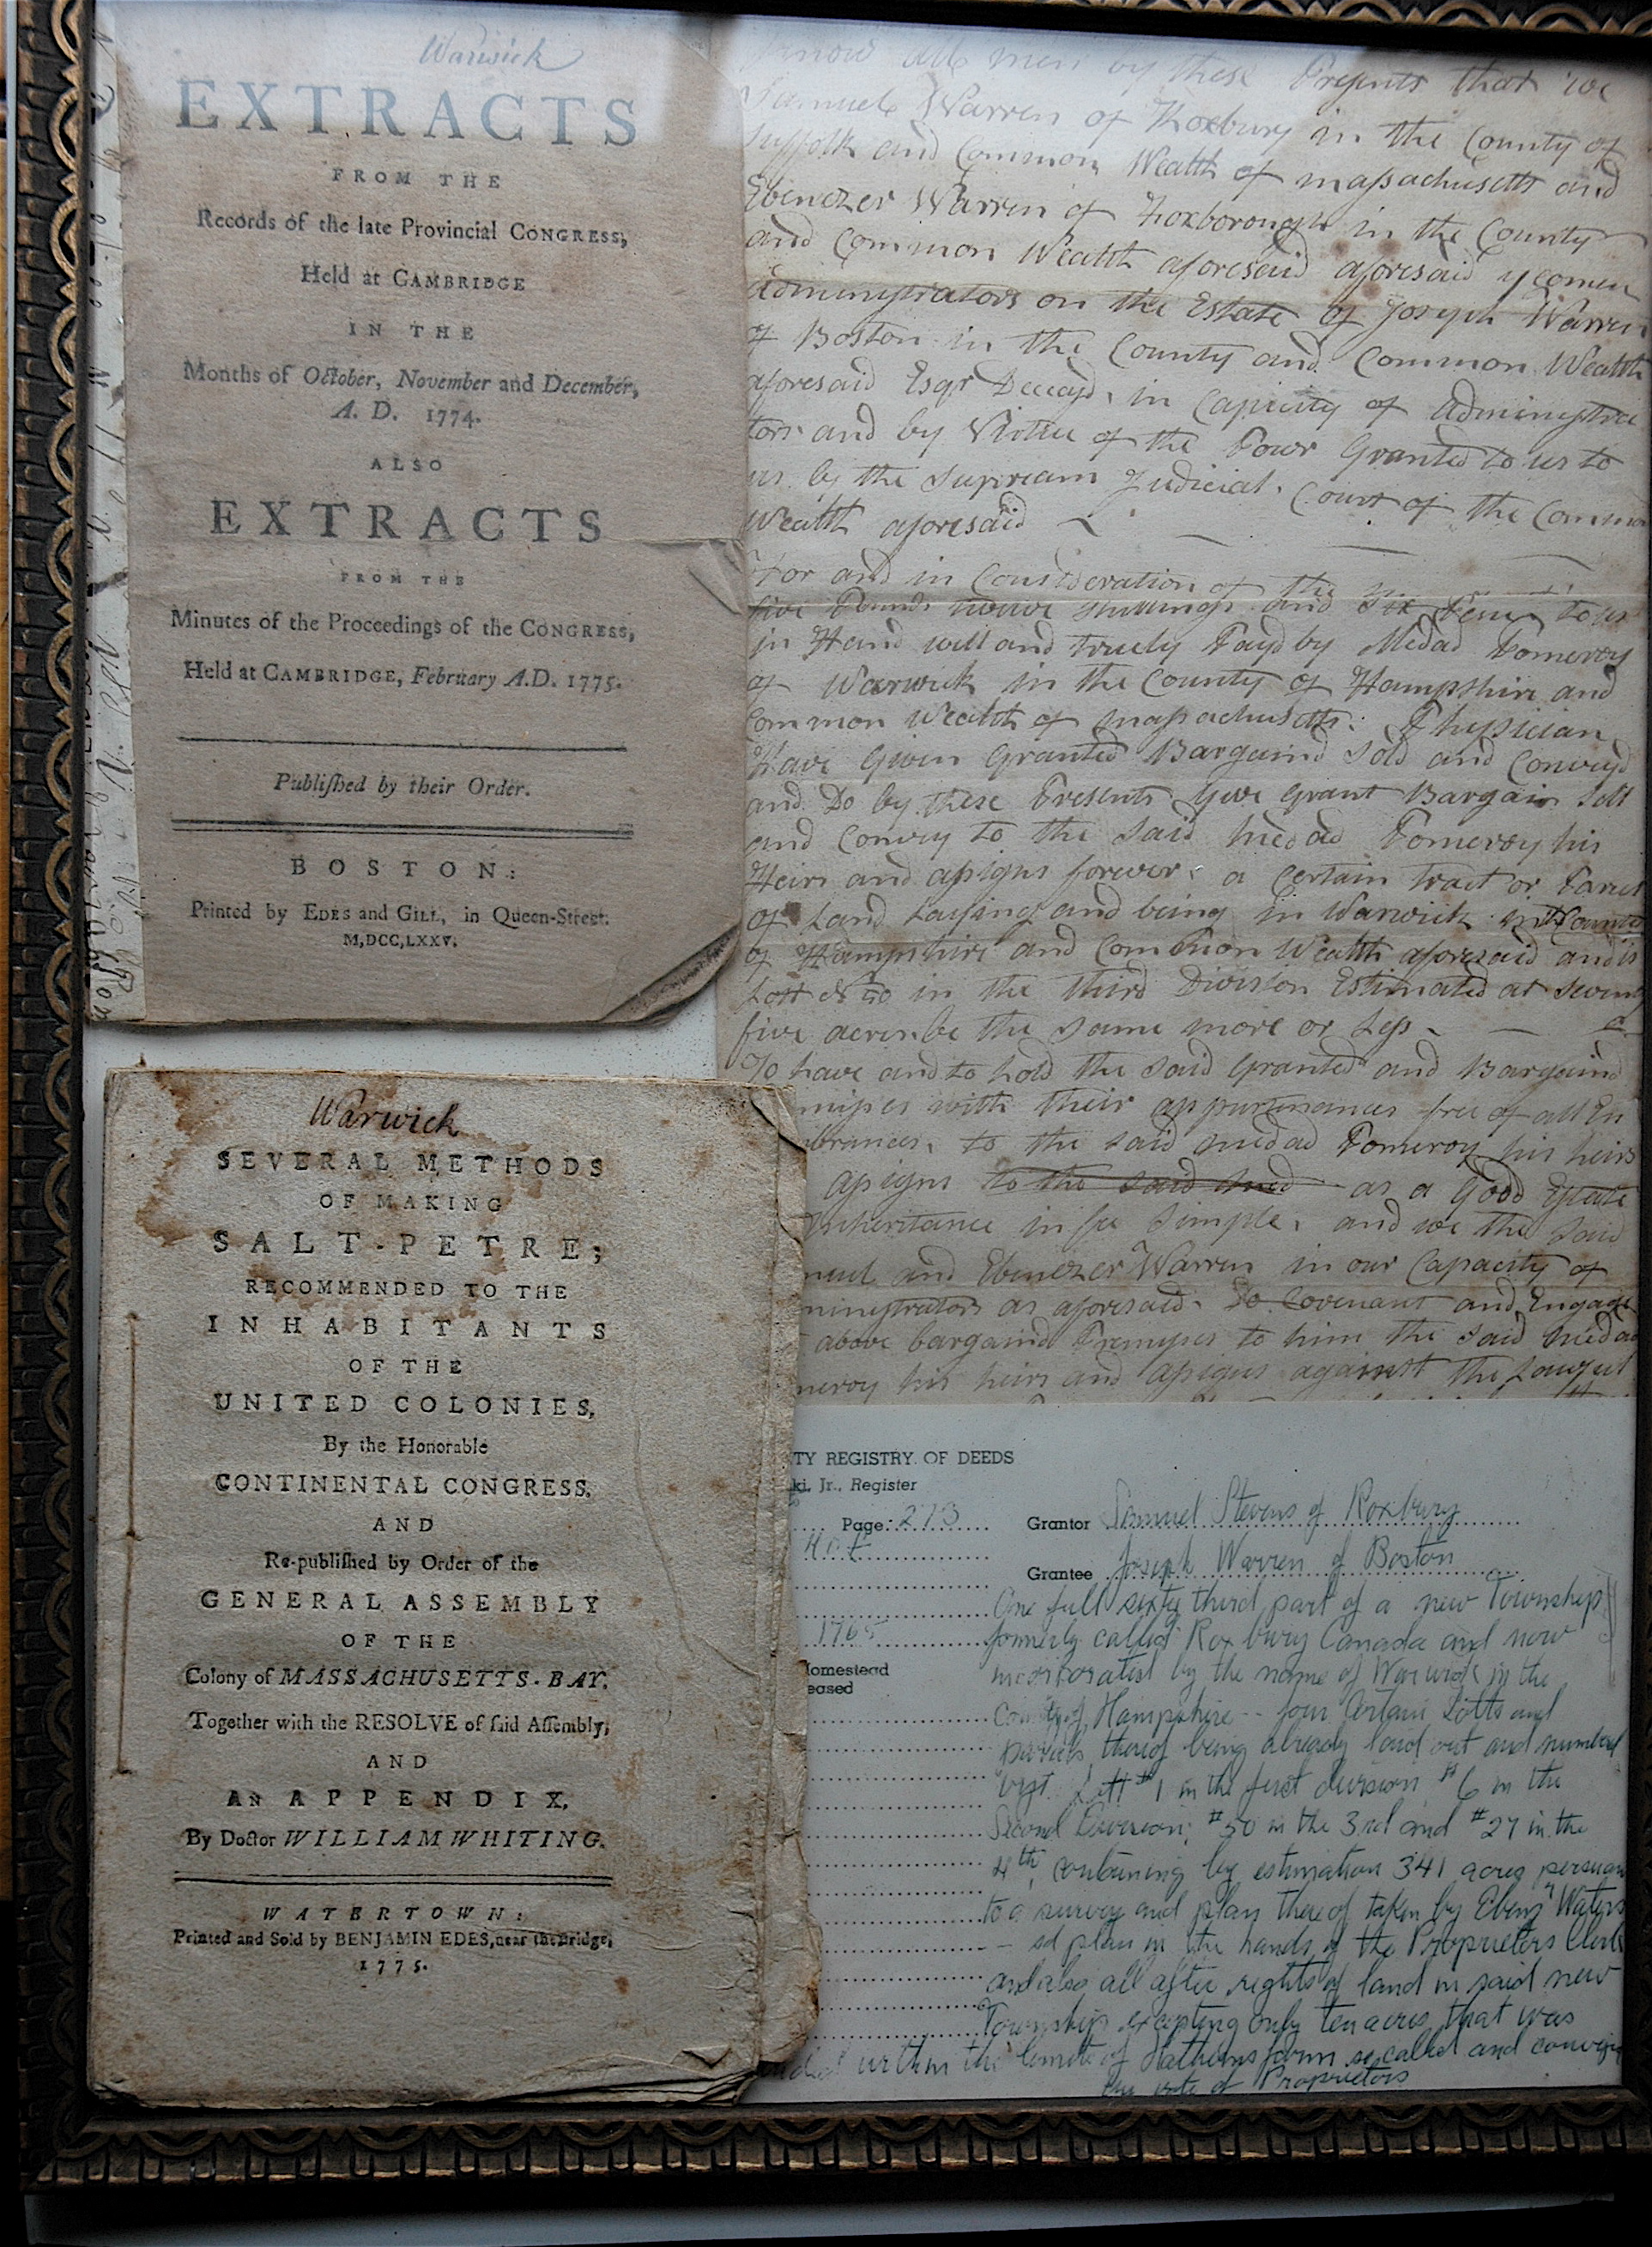 Warwick
EXTRACTS
FROM THE
Records of the late Provincial CONGRESS,
Held at CAMBRIDGE
IN THE
Months of October, November and December,
A. D. 1774.
ALSO
EXTRACTS
FROM THE
Minutes of the Proceedings of the CONGRESS,
Held at CAMBRIDGE, February A.D. 1775.
Publiſhed by their Order.
BOSTON:
Printed by EDES and GILL, in Queen-Street.
M,DCC,LXXV.
Warwick
SEVERAL METHODS
OF MAKING
SALT-PETRE;
RECOMMENDED TO THE
INHABITANTS
OF THE
UNITED COLONIES,
By the Honorable
CONTINENTAL CONGRESS.
AND
Re-publiſhed by Order of the
GENERAL ASSEMBLY
OF THE
Colony of MASSACHUSETTS-BAY.
Together with the RESOLVE of ſaid Aſſembly;
AND
An APPENDIX,
By Doctor WILLIAM WHITING.
WATERTOWN:
Printed and Sold by BENJAMIN EDES, near the Bridge,
1775.
Know all men by these Presents that we
Samuel Warren of Roxbury in the County of
Suffolk and Common Wealth of maſsachusetts and
Ebenezer Warren of Foxborough in the County
and Common Wealth aforesaid aforesaid yeomen
Administrators on the Estate of Joseph Warren
of Boston in the County and Common Wealth
aforesaid Esqr Deceasd, in Capacity of Administra
tors and by Virtue of the Powr Granted to us to
us by the Supream Judicial Court of the Common
Wealth aforesaid
For and in Consideration of the
five Pounds twelve Shillings and Six Pence to us
in Hand well and truely Payd by Medad Pomeroy
of Warwick in the County of Hampshire and
Common Wealth of maſsachusetts: Physician
Have Given Granted Bargaind Sold and Conveyd
and Do by these Presents Give Grant Bargain Sell
and Convey to the Said medad Pomeroy his
Heirs and aſsigns forever, a Certain tract or Parcel
of Land Laying and being in Warwick in the County
of Hampshire and Common Wealth aforesaid and is
Lott No 50 in the third Division Estimated at Seventy
five acres be the Same more or Leſs
To have and to hold the Said Granted and Bargaind
miſses with their appurtenances free of all En
brances, to the Said medad Pomeroy his heirs
aſsigns to the Said med as a Good Estate
Inheritance in fee Simple, and we the Said
muel and Ebenezer Warren in our Capacity of
ministrators as aforesaid. Do Covenant and Engage
above bargaind Premiſses to him the Said medad
meroy his heirs and aſsigns against the Lawful
TY REGISTRY OF DEEDS
ki, Jr., Register
Page: 273
Grantor Samuel Stevens of Roxbury
Grantee Joseph Warren of Boston
1765
omestead
eased
One full sixty third part of a new Township
formerly called Roxbury Canada and now
incorporated by the name of Warwick in the
County of Hampshire -- four Certain Lotts and
parcels thereof being already laid out and numbered
Lott #1 in the first division #6 in the
Second Division; #50 in the 3rd and #27 in the
4th, containing by estimation 341 acres persuan
to a survey and plan thereof taken by Ebenz Waters
-- sd plan in the hands of the Proprietors Clerk
and also all after rights of land in said new
Township excepting only ten acres that was
within the limits of Hathorns farm so called and
vote of Proprietors